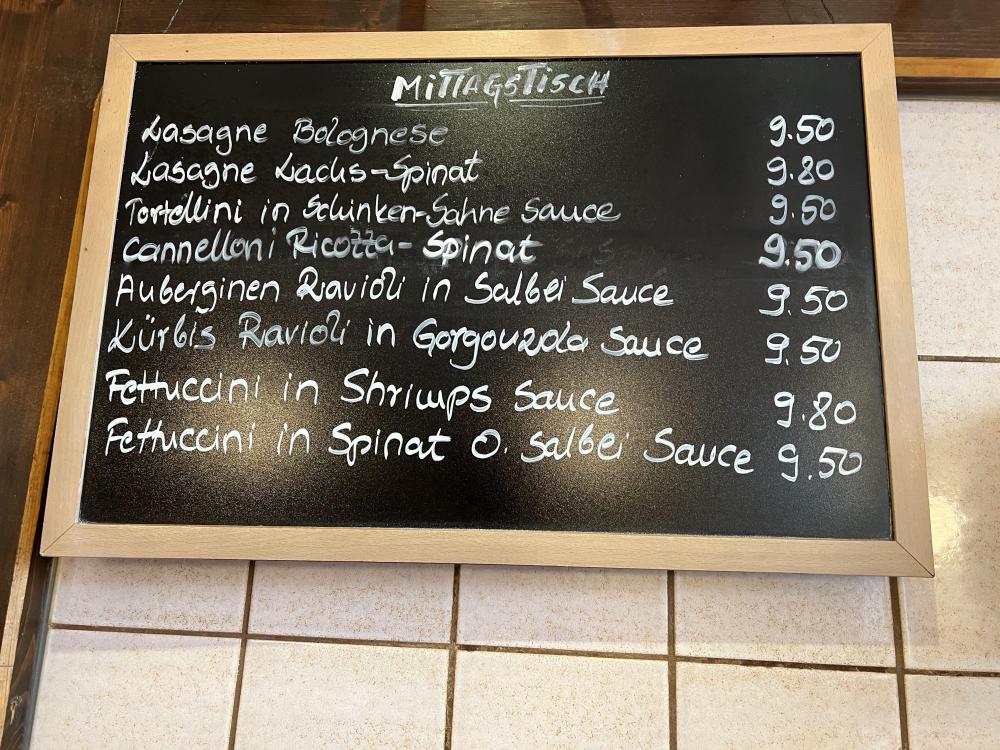 MITTAGSTISCH
Lasagne Bolognese 9.50
Lasagne Lachs-Spinat 9.80
Tortellini in Schinken-Sahne Sauce 9.50
Cannelloni Ricotta-Spinat 9.50
Auberginen Ravioli in Salbei Sauce 9.50
Kürbis Ravioli in Gorgonzola Sauce 9.50
Fettuccini in Shrimps Sauce 9.80
Fettuccini in Spinat O. Salbei Sauce 9.50